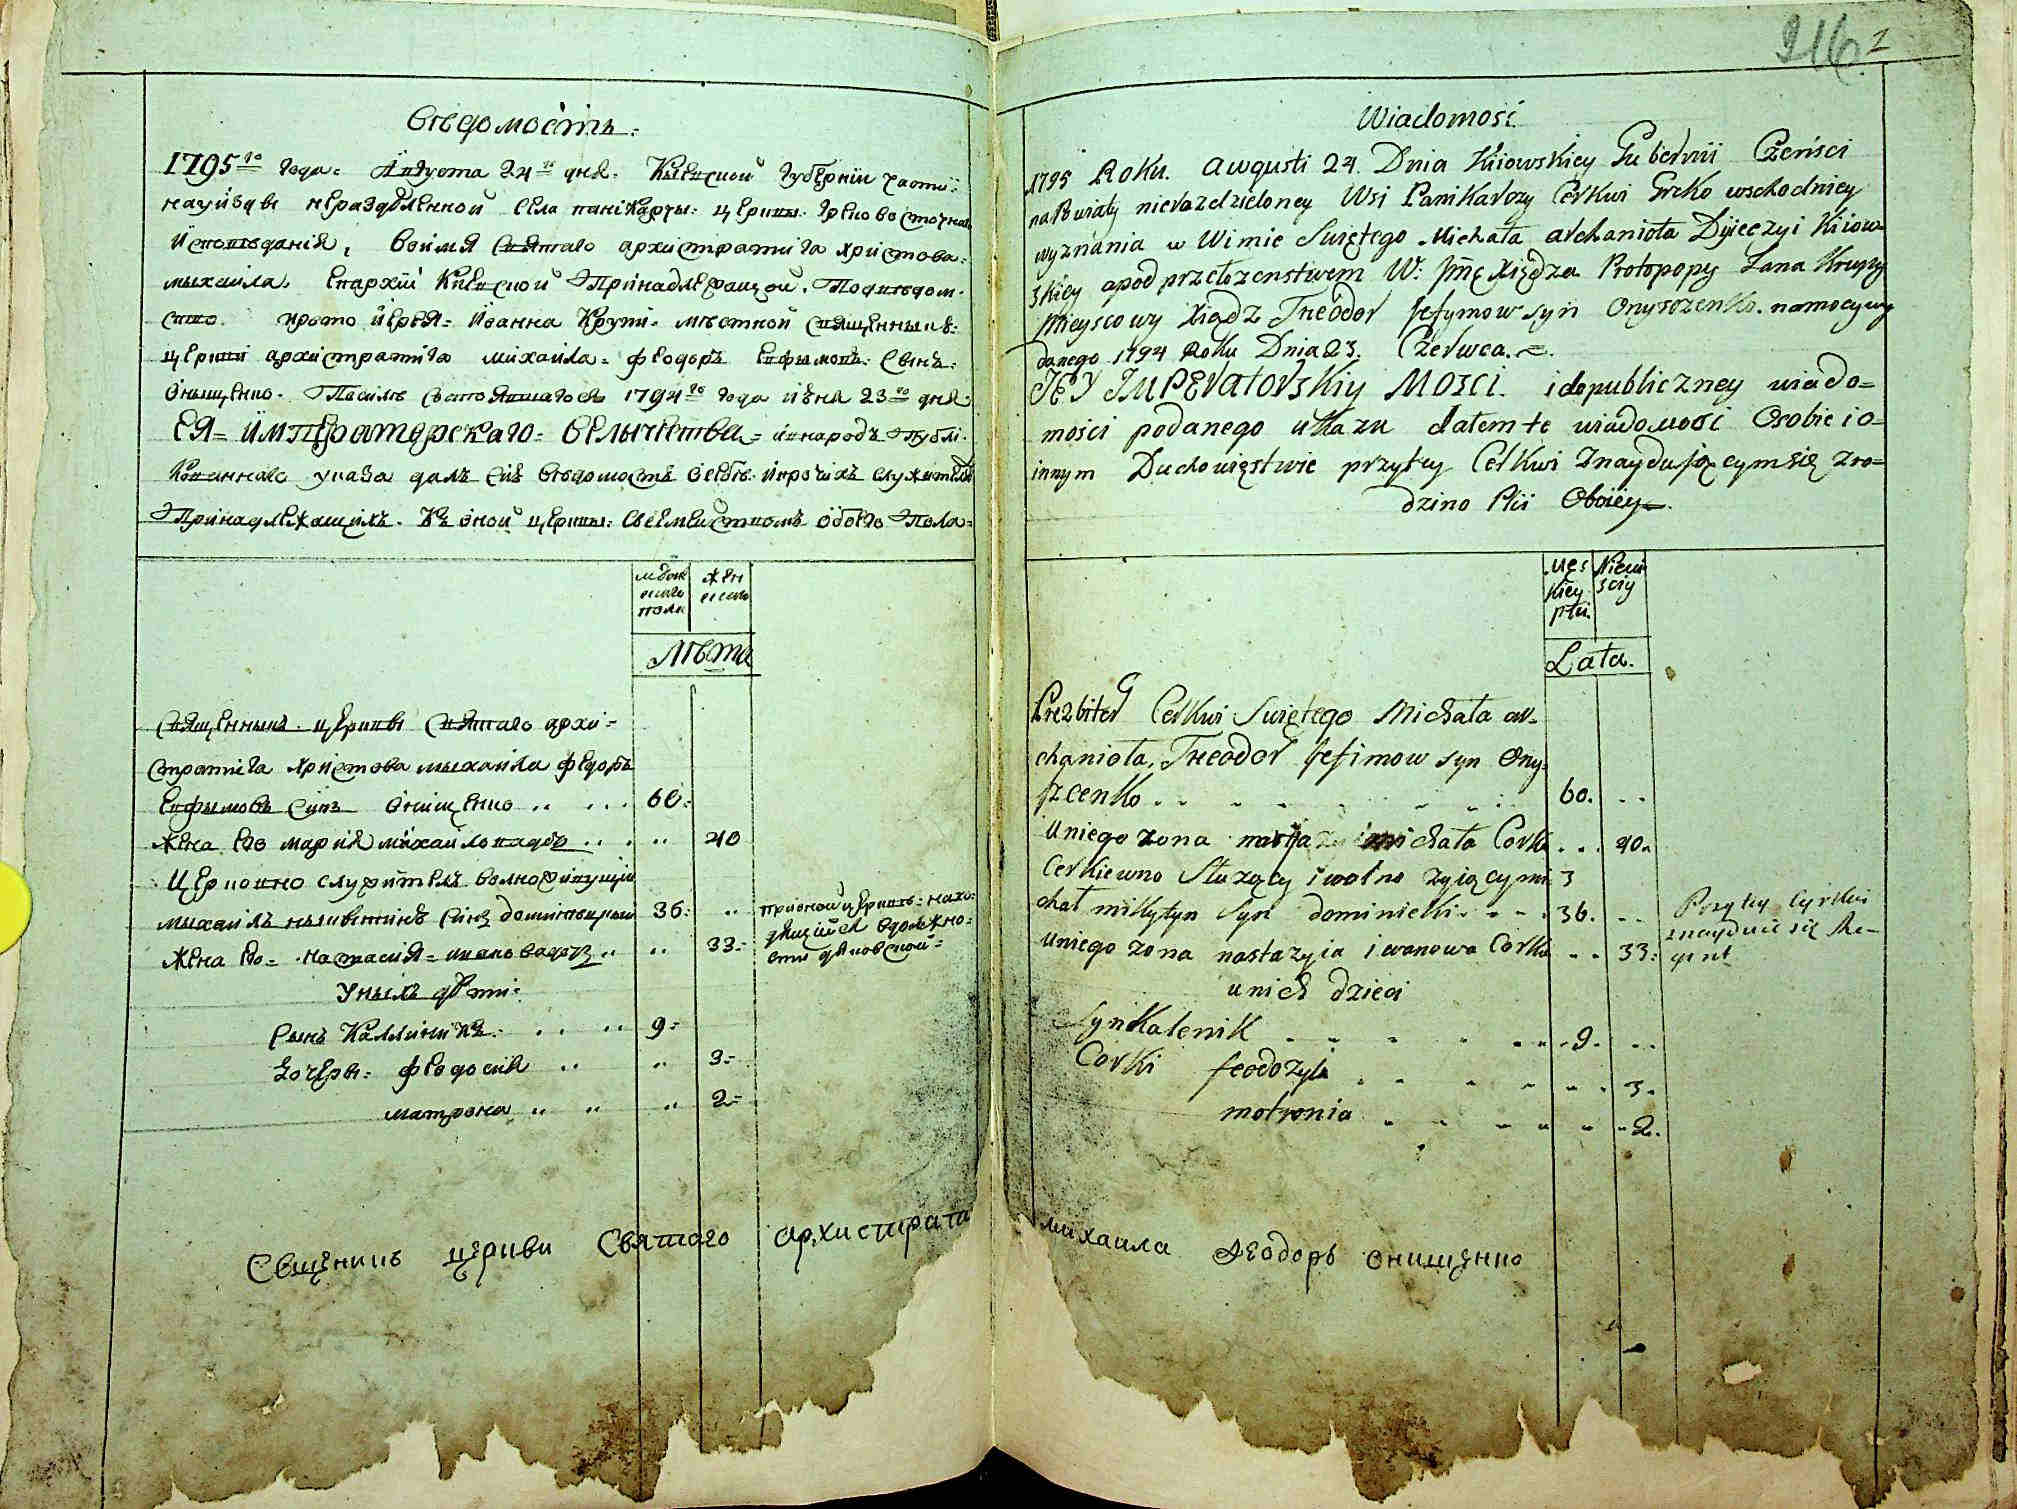 Вѣдомость
1795го Года: Августа 24го дня. Кіевской губерніи части
науѣздъ нераздѣленной села паникарчы: церкви: Греко восточнаго
исповѣданія, воимя святаго архистратига христова
михаила, Епархіи Киевской Принадлежащой. Подвѣдом
ство протоиерея Иоанна Крупи. мѣстной священникъ
церкви архистратига михаила: феодоръ Ефымовъ Сынъ
Онищенко. Посилѣ состоявшагося 1794го года июня 23го дня
ЕЯ Императорскаго Величества: и внародъ Публи
кованнаго указа далъ сию вѣдомость осебѣ и прочихъ служителяхъ
Принадлежащихъ. Къ оной церквы: Своемейством обоего Пола
мужескаго пола
женскаго
Лѣта
Священникъ церкви святаго архи
стратига христова михаила федоръ
Ефымовъ синъ Онищенко 60
Жена его мария михайловадоч 40
Церковно служитель волно живущий
михаилъ никитинъ синъ 36
прионой церкви: нахо
дящийся вдолжно
сти дяковской
Жена Его настасия ивановадочь 33
Унихъ дѣти
Сынъ Каллиникъ 9
дочери феодосия 3
матрона 2
Свщеникъ церкви Святаго архистрата
Wiadomość
1795 Roku. Awgusti 24. Dnia Kiiowskiey Gubernii Cześci
na Powiaty nierazdzieloney Wsi Panikarczy Cerkwi Greko wschodniey
wyznania w Wimie Swiętego Michała archanioła Dyieczyi Kiiow
skiey apod przełozenstwem W: Jmę Xiędza Protopopy Jana Krupy
Mieyscowy Xiądz Theodor Jefymow syn Onyszczenko. namocy wy
danego 1794 Roku Dnia 23. Czerwca.
JEY IMPEratorskiy MOSCI. idopubliczney wiado=
mości podanego ukazu dałem te wiadomość Osobie i o=
innym Duchowięstwie przytey Cerkwi znayduiącym się zro=
dzino Płci Oboiey
Męskiey płci
Niewiesciy
Lata.
Prezbiter Cerkwi Swiętego Michała ar-
chanioła, Theodor Jefimow syn Ony-
szczenko 60.
Uniego zona marija michała Corka 40.
Cerkiewno Słuzący i wolno zyiący mi
chał mikytyn Syn dominicki 36.
Przytey Cyrkwi
znayduie się Re-
gent
Uniego zona nastazyia iwanowa Corka 33.
unich dzieci
Syn Kalenik 9.
Corki feodozyia 3.
motronia 2.
михаила Феодоръ онищенко
216
1